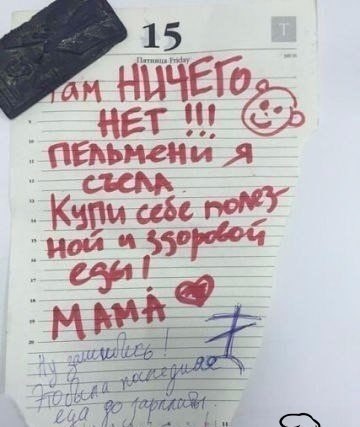 15
Пятница Friday
Там НИЧЕГО
НЕТ !!!
ПЕЛЬМЕНИ Я
СЪЕЛА.
Купи себе полез-
ной и здоровой
еды!
МАМА
Ну зашибись!
Это была последняя
еда до зарплаты.